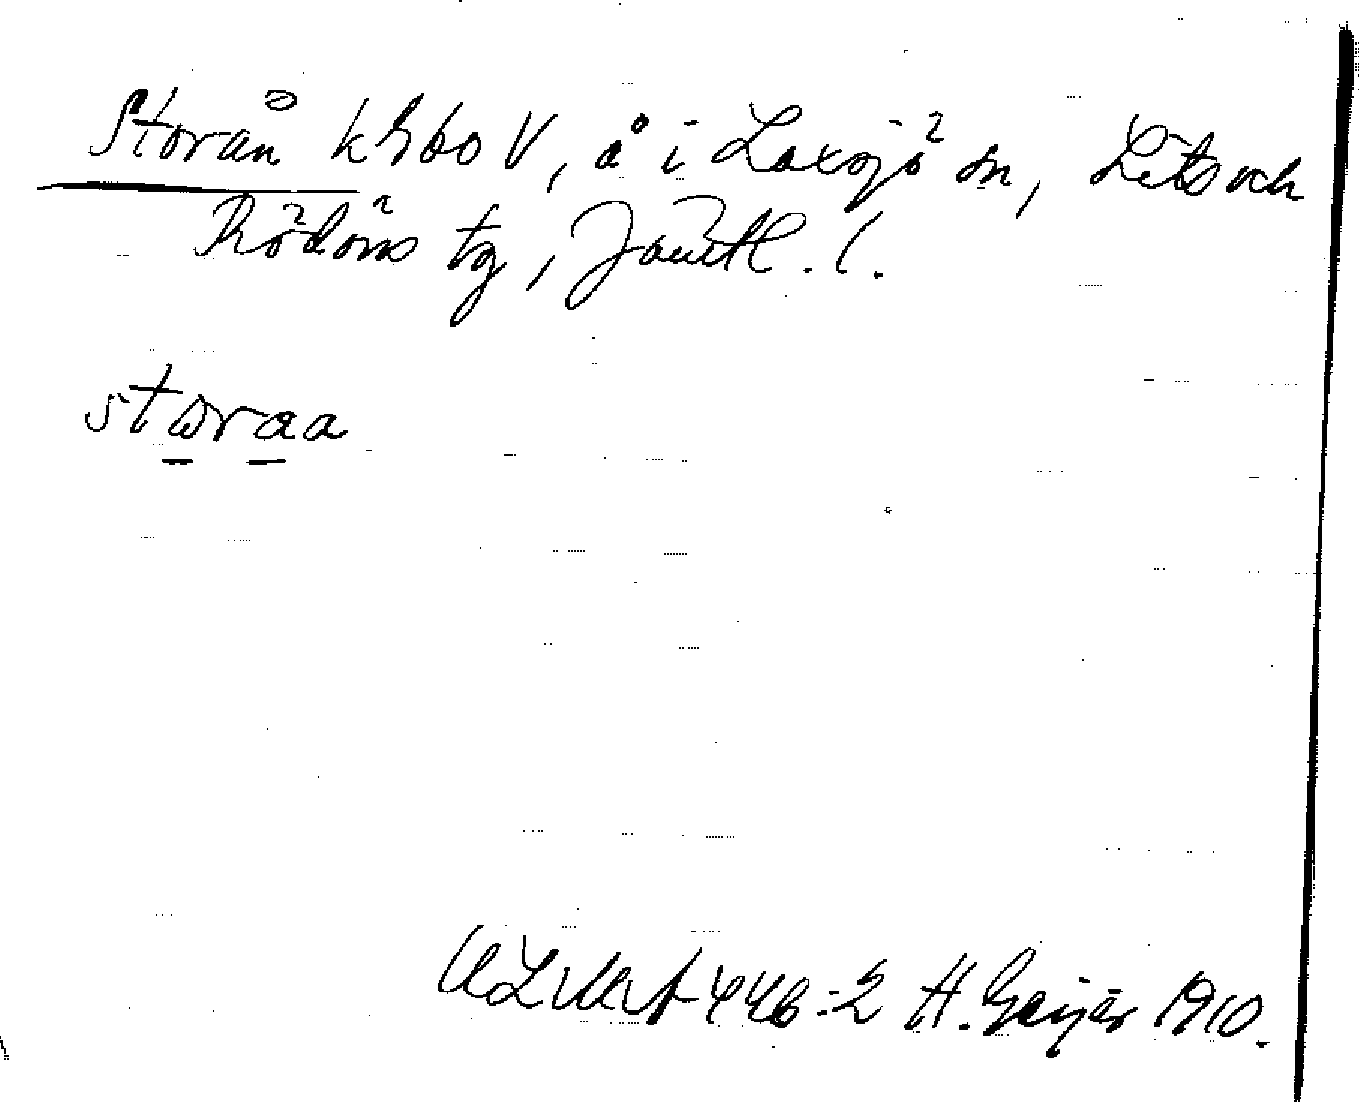 Storån k 960 V, å i Laxsjö sn, Lits och
Rödöns tg, Jämtl. l.
storaa
ULMA 446:2 H. Geijer 1910.